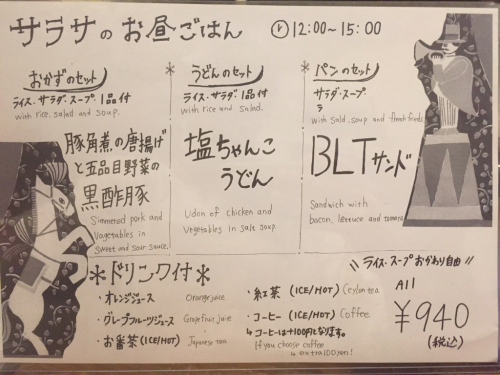 サラサのお昼ごはん
12:00~15:00
おかずのセット
ライス・サラダ・スープ 1品付
with rice, salad and soup.
豚角煮の唐揚げ
と五品目野菜の
黒酢豚
Simmered pork and
Vagetables in
sweet and sour sauce.
*うどんのセット
ライス・サラダ・1品付
with rice and salad.
塩ちゃんこ
うどん
Udon of chicken and
vegetables in salt soup.
*パンのセット
サラダ・スープ
with salad, soup and
BLTサンド
Sandwich with
bacon, lettuce and tomato
*ドリンク付*
・オレンジジュース Orange juice
・グレープフルーツジュース Grapefruit juice
・お番茶(ICE/HOT) Japanese tea
・紅茶(ICE/HOT) Ceylon tea
・コーヒー(ICE/HOT) Coffee
↳コーヒーは+100円になります。
If you choose coffee
↳ extra 100yen!
ライス・スープおかわり自由
All
¥940
(税込)